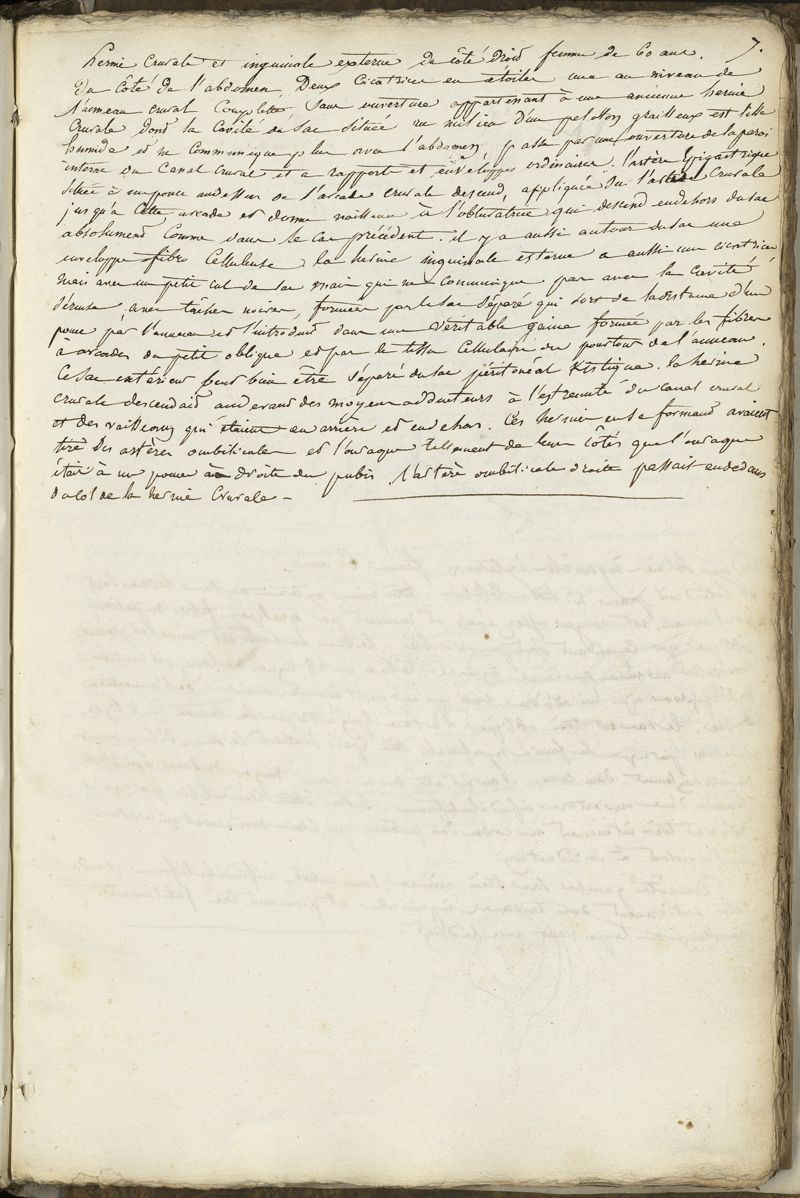 7.
hernie crurale et inguinale externe du côté droit femme de 60 ans.
Du côté de l'abdomen, Deux cicatrices en étoiles une au niveau de
l'anneau crural complette, sans ouverture appartenant à une ancienne hernie
crurale dont la cavité du sac située au milieu d'un peloton graisseux est lisse
humide et ne communique plus avec l'abdomen, passe par une ouverture de la paroi
interne du canal crural et a rapports et enveloppes ordinaires. l'artère épigastrique
située à un pouce audessus de l'arcade crurale descend, appliquée sur l'artère crurale
jusqu'à cette arcade et donne naissance à l'obturatrice qui descend endehors du sac
absolument comme dans le cas précédent. il y a aussi autour du sac une
enveloppe fibro celluleuse. la hernie inguinale externe a aussi une cicatrice,
mais avec un petit cul de sac mais qui ne communique pas avec la cavité
séreuse, avec tâches noires, formées par le sac séparé qui sort de la distance d'un
pouce par l'anneau et s'introduit dans une véritable gaine formée par les fibres
à arcades du petit oblique et par le tissu cellulaire du pourtour de l'anneau.
Ce sac extérieur peut bien être séparé du sac péritonéal kistique. la hernie
crurale descendait audevant des moyens adducteurs à l'extremité du canal crural
et des vaisseaux qui étaient en arrière et endehors. Ces hernies en se formant avaient
tiré les artères ombilicales et l'ouraque tellement de leur côtés que l'ouraque
était à un pouce à droite du pubis, l'artère ombilicale droite passait endedans
du col de la hernie crurale -